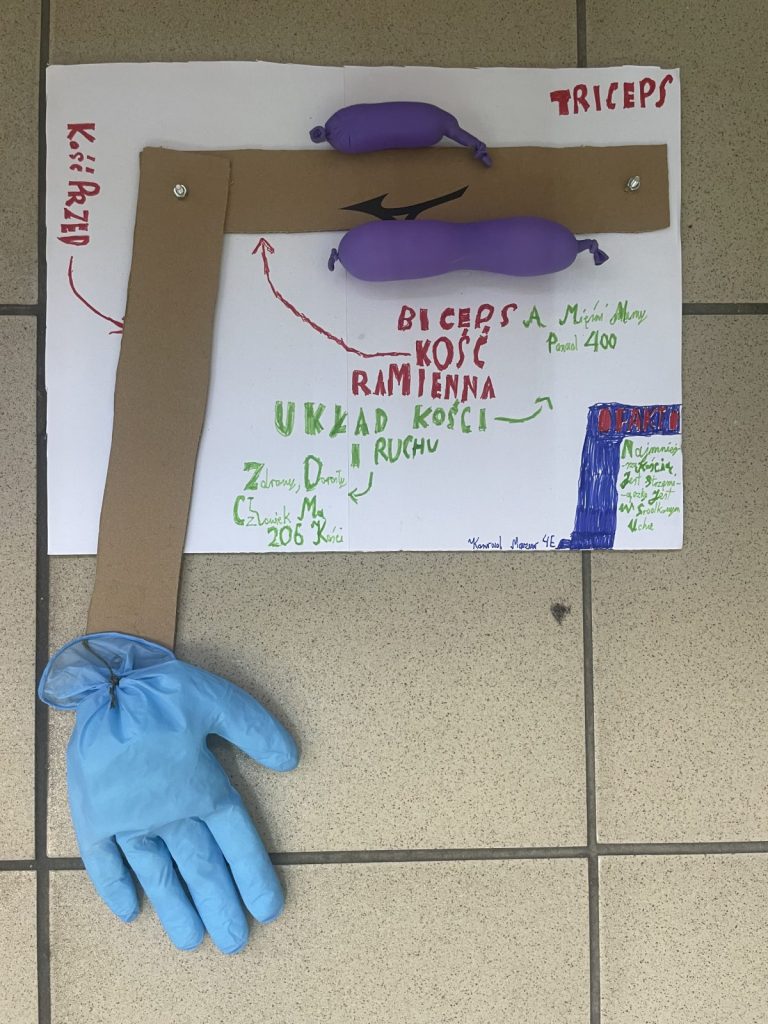 TRICEPS
KOŚĆ PRZED
BICEPS
KOŚĆ
RAMIENNA
A Mięśni Mamy
Ponad 400
UKŁAD KOŚCI
I RUCHU
Zdrowy, Dorosły
Człowiek Ma
206 Kości
Kością,
Jest
Jest
w Środkowym
Uchu
Konrad 4E